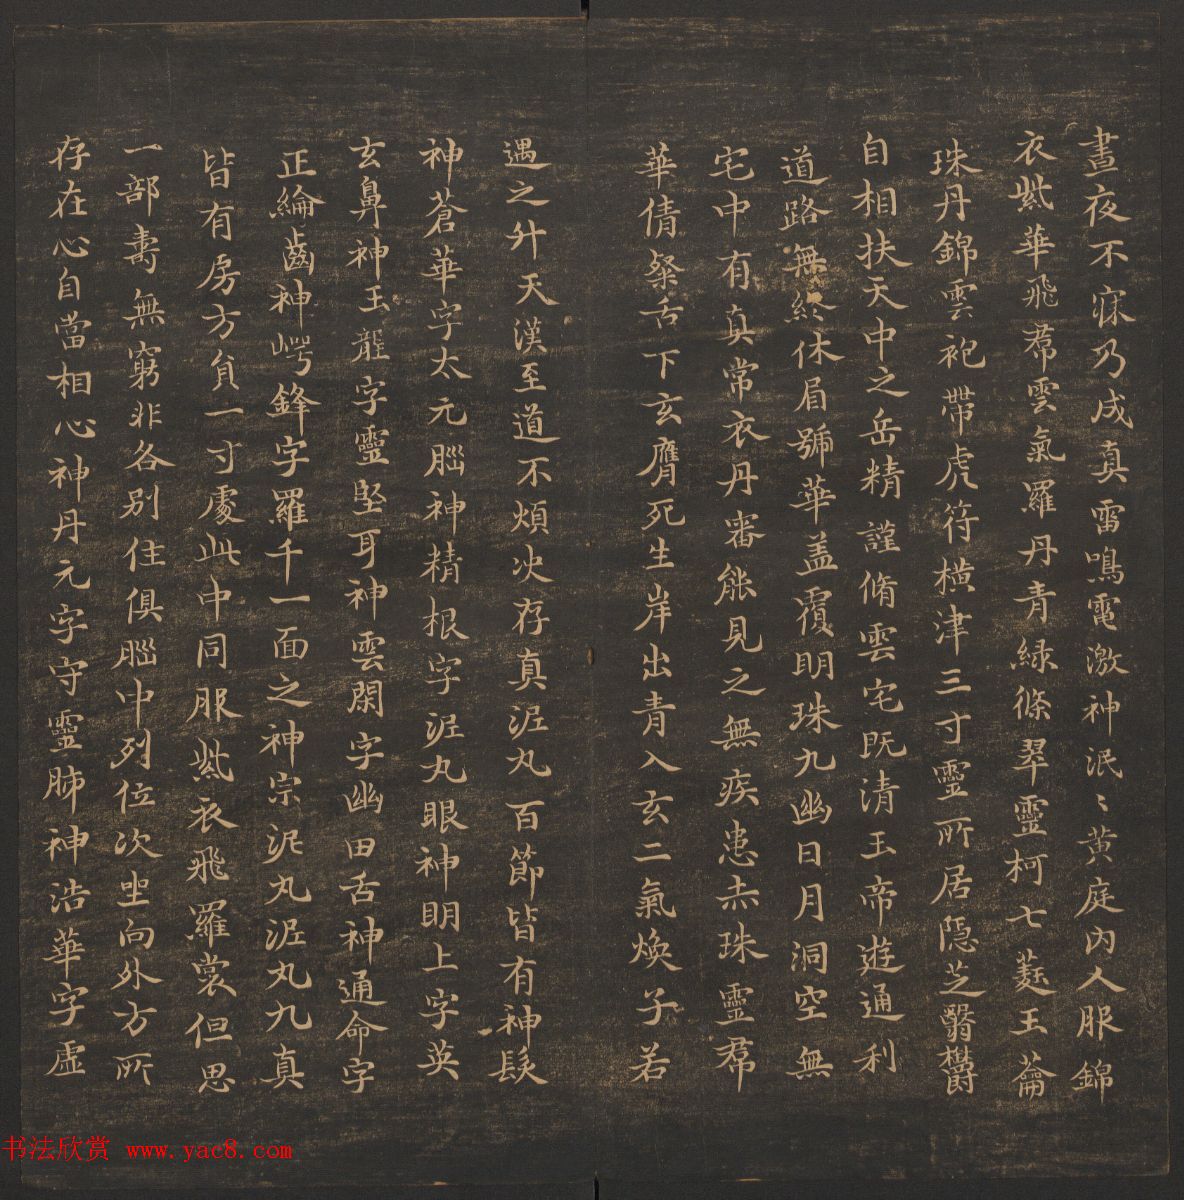 晝夜不寐乃成真雷鳴電激神泯〻黄庭内人服錦
衣紫華飛帬雲氣羅丹青緑條翠靈柯七蕤玉蘥
珠丹錦雲袍帶虎符横津三寸靈所居隠芝翳欝
自相扶天中之岳精謹脩雲宅既清玉帝遊通利
道路無終休眉號華盖覆明珠九幽日月洞空無
宅中有真常衣丹審能見之無疾患赤珠靈帬
華倩粲舌下玄膺死生岸出青入玄二氣煥子若
遇之升天漢至道不煩决存真泥丸百節皆有神髮
神蒼華字太元腦神精根字泥丸眼神明上字英
玄鼻神玉壟字靈堅耳神雲閑字幽田舌神通命字
正綸齒神崿鋒字羅千一面之神宗泥丸泥丸九真
皆有房方負一寸處此中同服紫衣飛羅裳但思
一部壽無窮非各别住俱腦中列位次坐向外方所
存在心自當相心神丹元字守靈肺神浩華字虚
书法欣赏 www.yac8.com